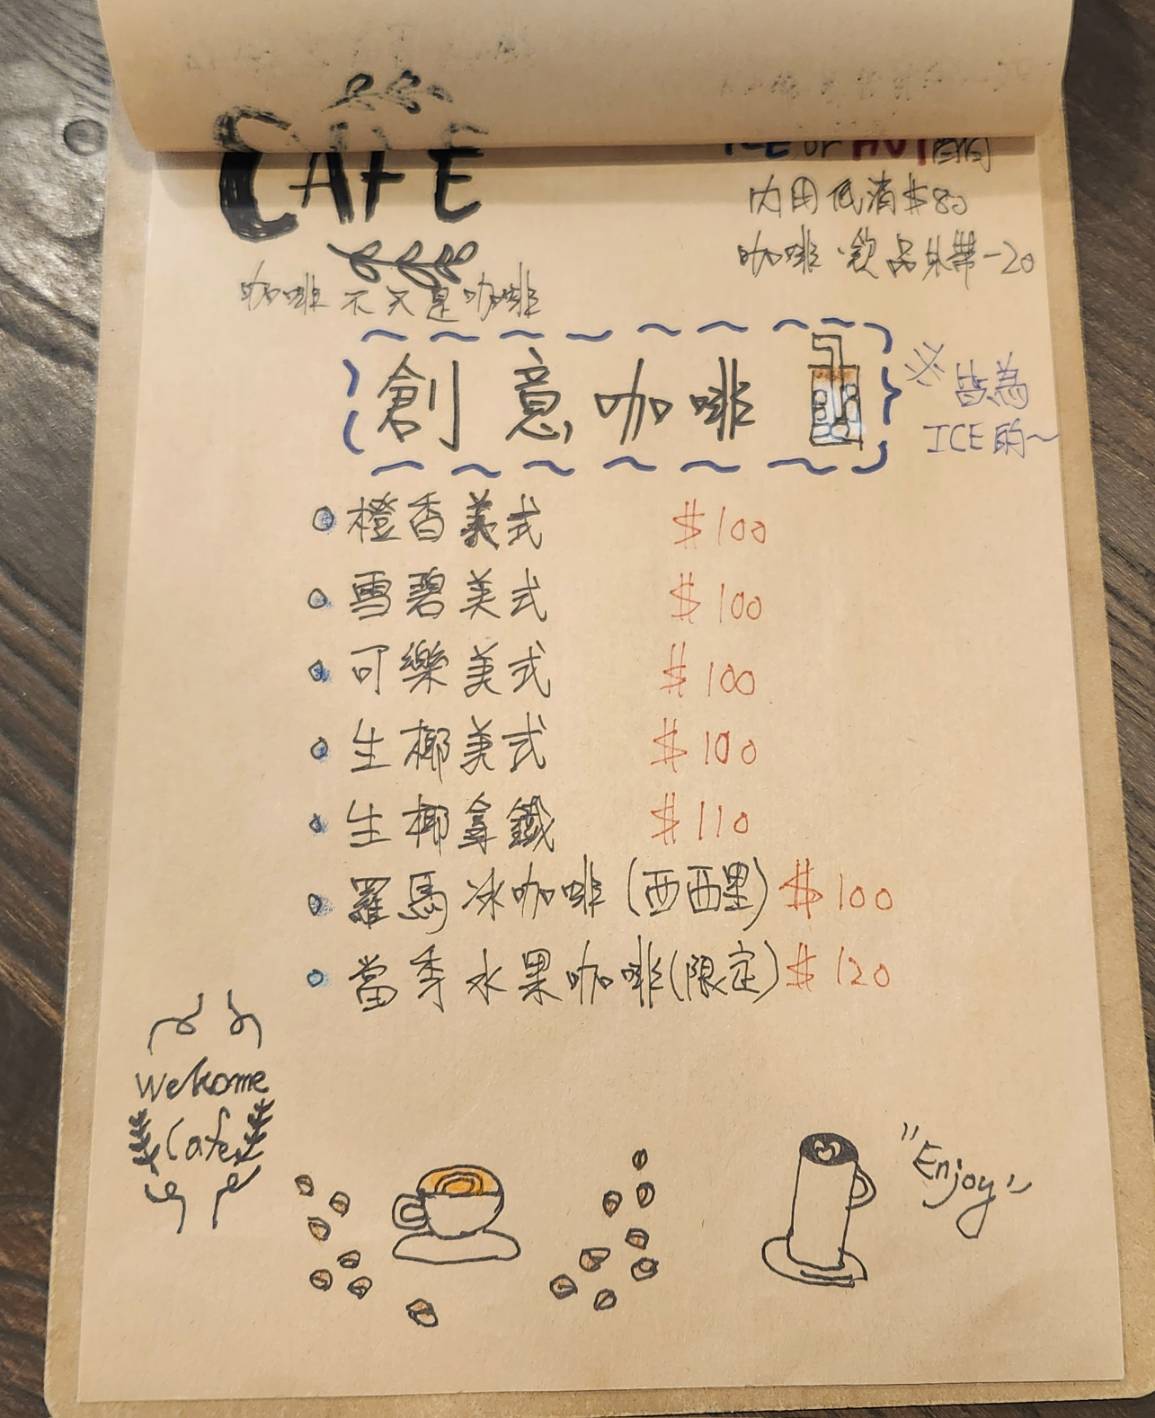 CAFE
ICE or HOT
內用低消$80
咖啡、飲品外帶-20
咖啡不只是咖啡
創意咖啡
※皆為
ICE的~
橙香美式 $100
雪碧美式 $100
可樂美式 $100
生椰美式 $100
生椰拿鐵 $110
羅馬冰咖啡(西西里) $100
當季水果咖啡(限定) $120
Welcome
Cafe
"Enjoy"